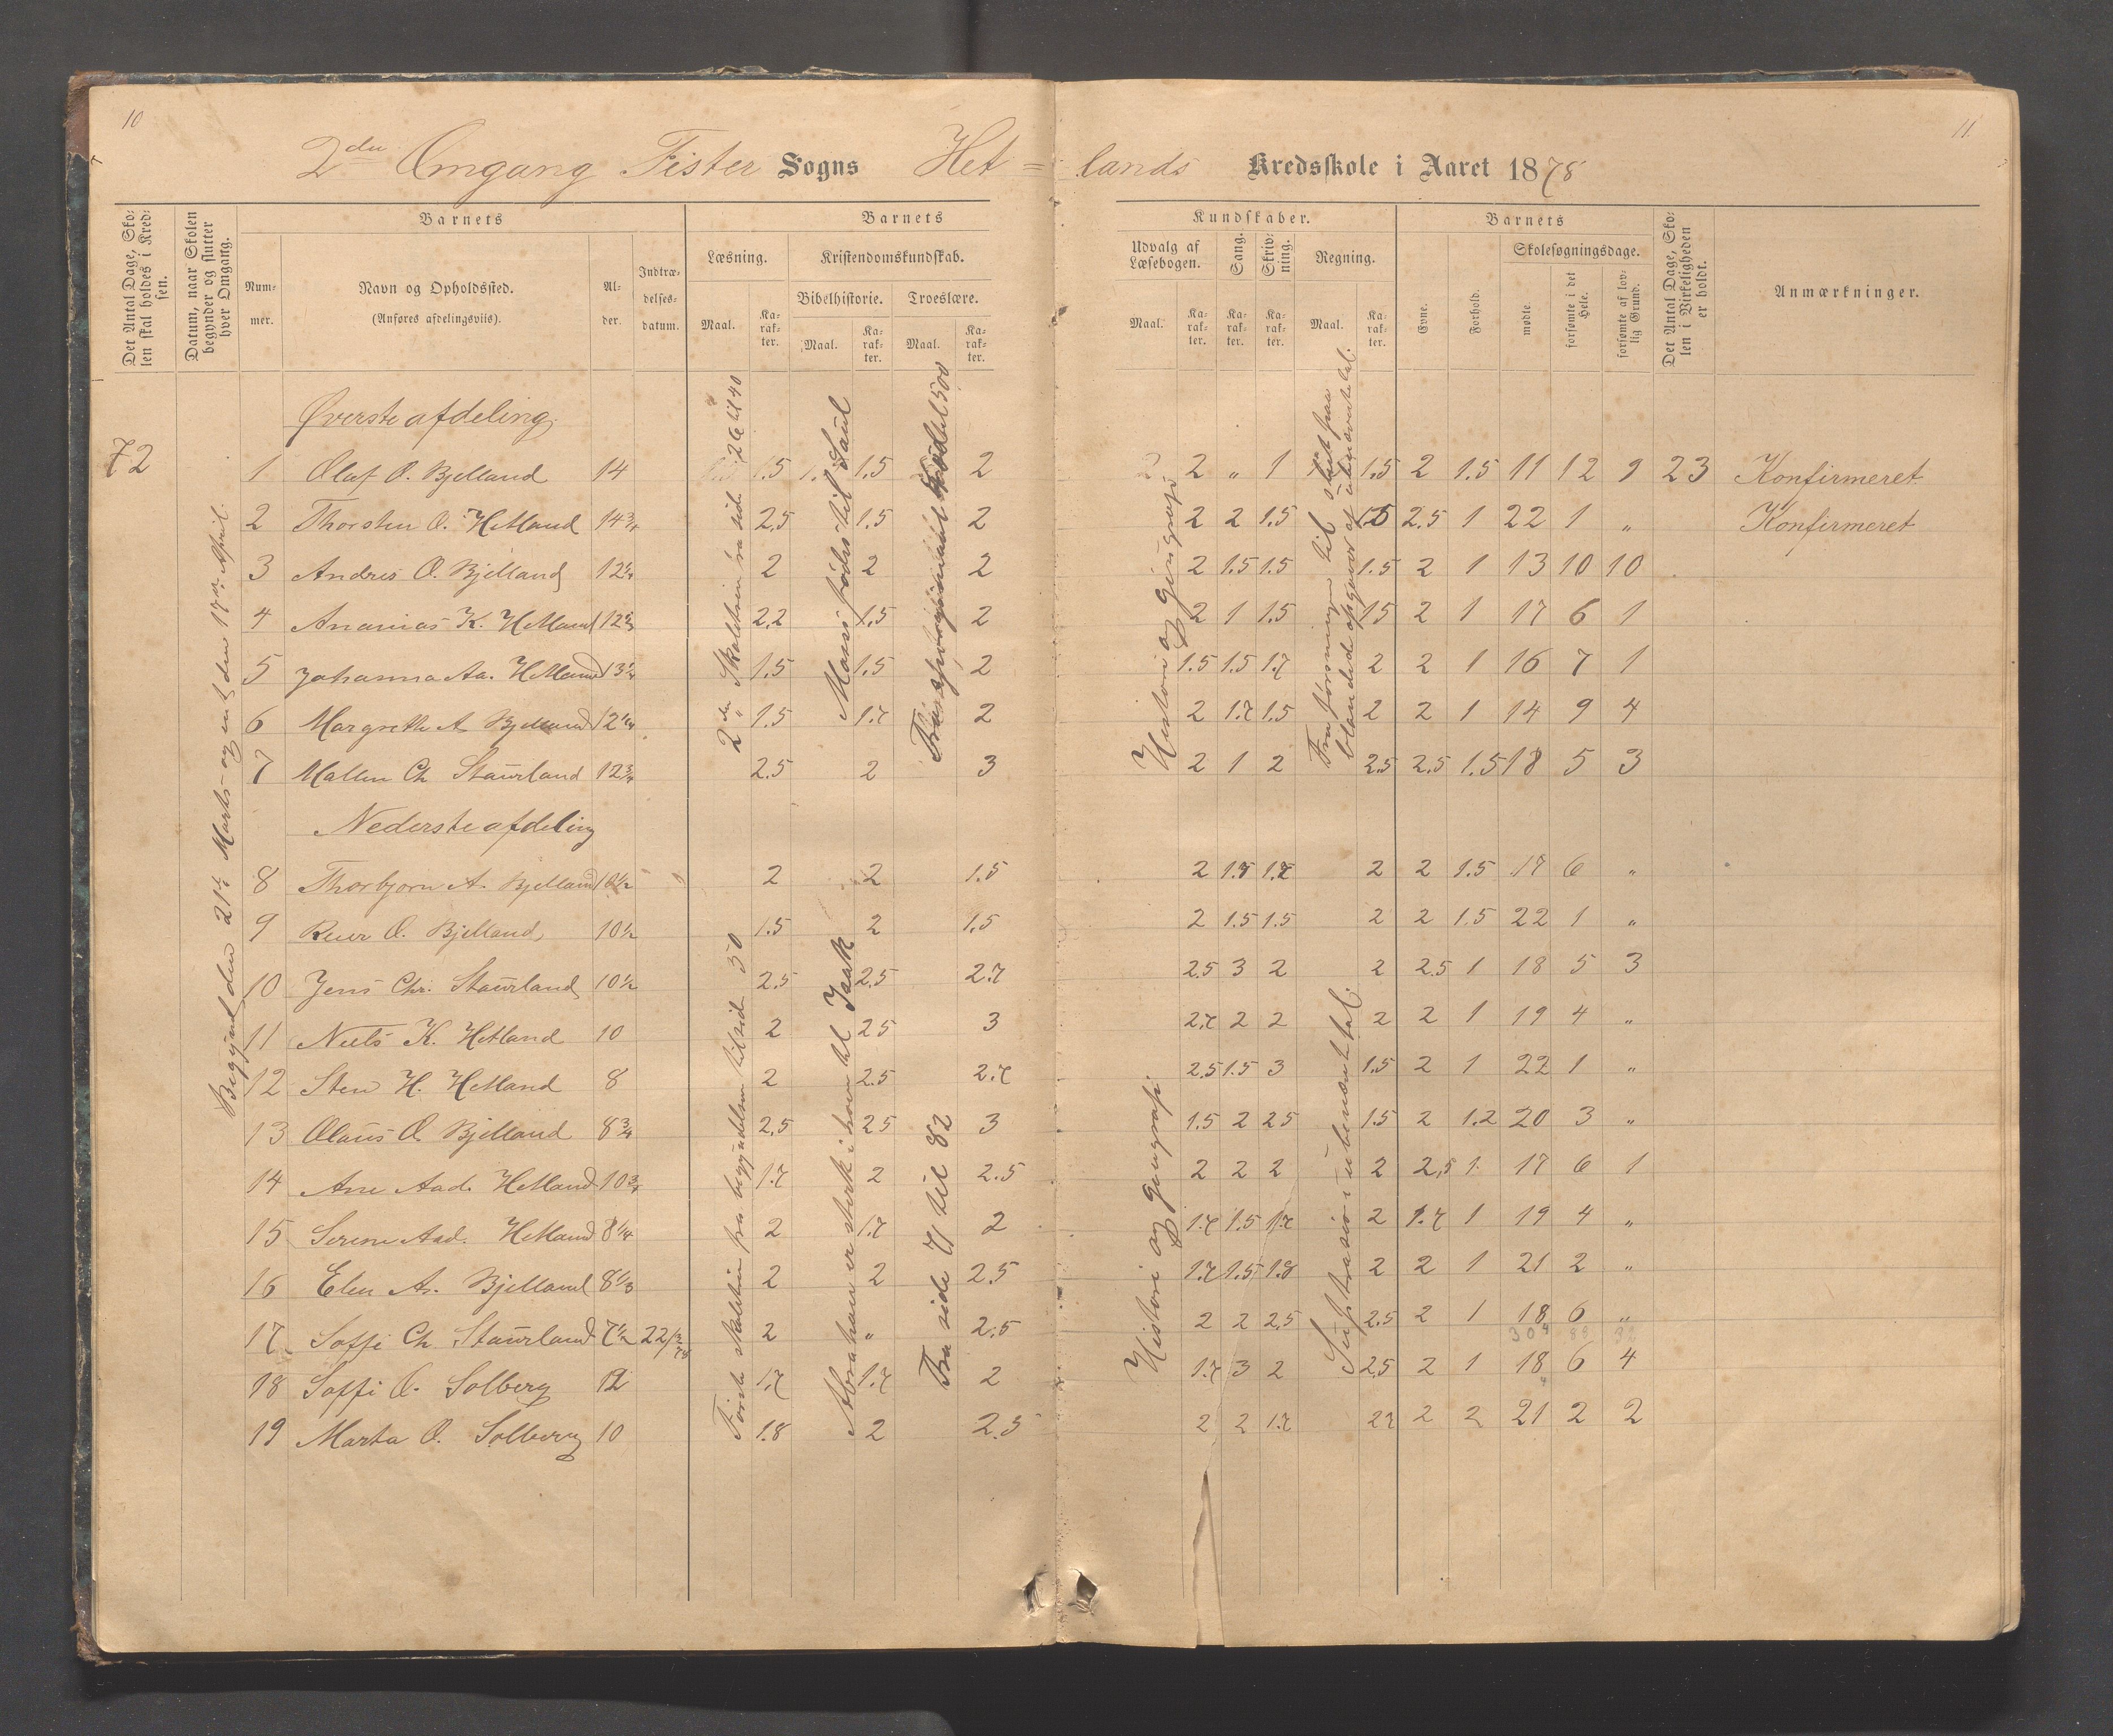 10
11.
2den Omgang Fister Sogns Het=lands Kredsskole i Aaret 1878
Det Antal Dage, Skolen skal holdes i Kredsen.
Datum, naar Skolen begynder og slutter hver Omgang.
Barnets
Nummer.
Navn og Opholdssted.
(Anføres afdelingsviis).
Alder.
Indtrædelsesdatum.
Barnets
Læsning.
Maal.
Karakter.
Kristendomskundskab.
Bibelhistorie.
Maal.
Karakter.
Troeslære.
Maal.
Karakter.
Kundskaber.
Udvalg af Læsebogen.
Maal.
Karakter.
Sang.
Karakter.
Skrivning.
Karakter.
Regning.
Maal.
Karakter.
Barnets
Evne.
Forhold.
Skolesøgningsdage.
mødte.
forsømte i det Hele.
forsømte af lovlig Grund.
Det Antal Dage, Skolen i Virkeligheden er holdt.
Anmærkninger.
72
Begyndt den 21de Marts og endt den 17de April.
Øverste afdeling.
2den Skoletrin fra side 26 til 40
Mosis fødsel til Saul
Histori og geografi
1 Olaf O. Bjelland 14 1.5 1.5 2 2 „ 1 1.5 2 1.5 11 12 9 23 Konfirmeret
2 Thorsten O. Hetland 14¾ 2.5 1.5 2 2 2 1.5 1.5 2.5 1 22 1 „ Konfirmeret
3 Andres O. Bjelland 12¼ 2 2 2 2 1.5 1.5 1.5 2 1 13 10 10
4 Ananias K. Hetland 2.2 1.5 2 2 1 1.5 1.5 2 1 17 6 1
5 Johanna Aa. Hetland 1.5 1.5 2 1.5 1.5 1.7 2 2 1 16 7 1
6 Margrethe A Bjelland 12¼ 1.5 1.7 2 2 1.7 1.5 2 2 1 14 9 4
7 Mallen Ch Staurland 12¾ 2.5 2 3 2 1 2 2.5 2.5 1.5 18 5 3
Nederste afdeling
Første skoletrin fra begyndelsen til side 50
Abrahams til Isaak
Fra side 71 til 82
Histori og geografi
Subtraksion i ubenævnt tal.
8 Thorbjørn A. Bjelland 10½ 2 2 1.5 2 1.7 1.7 2 2 1.5 17 6 „
9 Reier O. Bjelland, 10½ 1.5 2 1.5 2 1.5 1.5 2 2 1.5 22 1 „
10 Jens Chr. Staurland 10½ 2.5 2.5 2.7 2.5 3 2 2 2.5 1 18 5 3
11 Niels K. Hetland 10 2 2.5 3 2.7 2 2 2 2 1 19 4 „
12 Sten H. Hetland 8 2 2.5 2.7 2.5 1.5 3 1.5 2 1 22 1 „
13 Olaus O. Bjelland 8¾ 2.5 2.5 3 1.5 2 2.5 1.5 2 1.2 20 3 „
14 Ane Aad. Hetland 10¾ 1.7 2 2.5 2 2 2 2 2.5 1. 17 6 1
15 Serine Aad. Hetland 8¼ 2 1.7 2 1.7 1.5 1.7 2 1.7 1 19 4 „
16 Elen A. Bjelland 8⅓ 2 2 2.5 1.7 1.5 1.8 2 2 1 21 2 „
17 Soffi Ch. Staurland 7½ 22/3 78 2 „ 2.5 2 2 2.5 2.5 2 1 18 6 „
18 Soffi O. Solberg 12 1.7 1.7 2 1.7 3 2 2.5 2 1 18 6 4
19 Marta O. Solberg 10 1.8 2 2.5 2 2 1.7 2.7 2 2 21 2 2